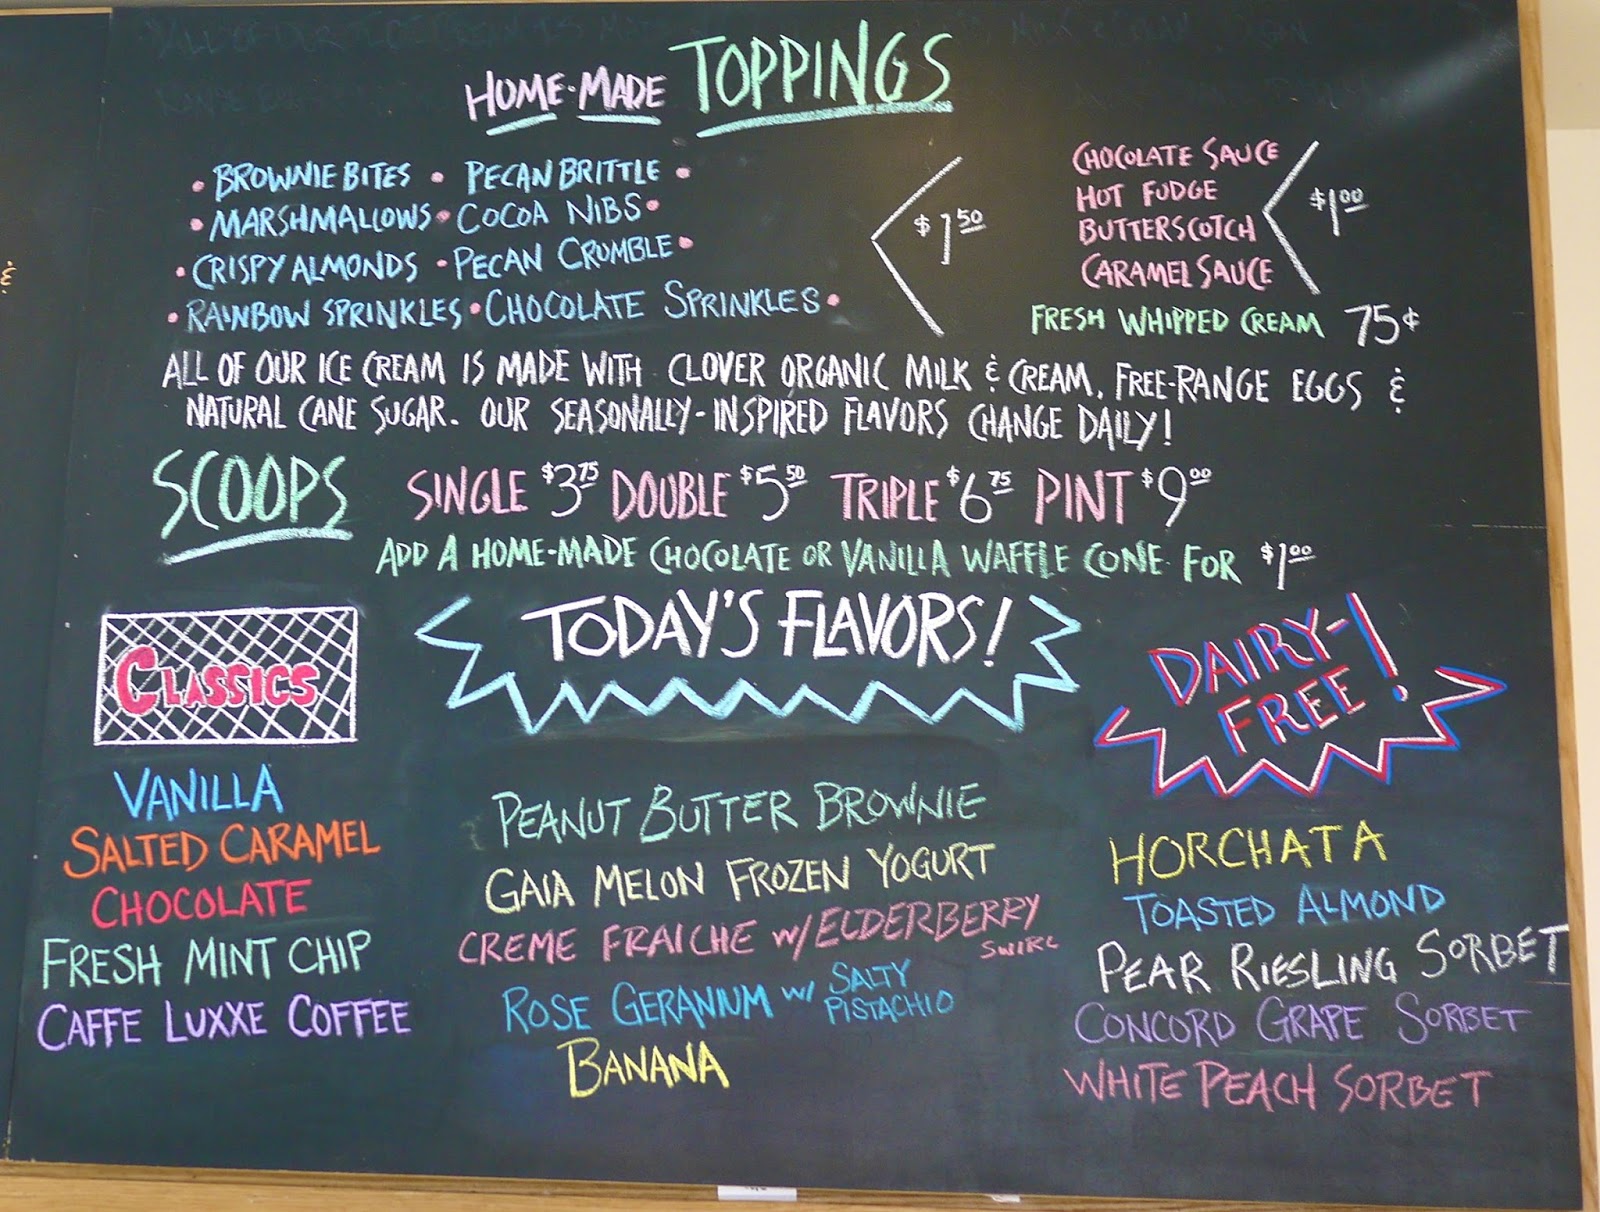 HOME-MADE TOPPINGS
• BROWNIE BITES • PECAN BRITTLE •
• MARSHMALLOWS • COCOA NIBS •
• CRISPY ALMONDS • PECAN CRUMBLE •
• RAINBOW SPRINKLES • CHOCOLATE SPRINKLES •
$1.50
CHOCOLATE SAUCE
HOT FUDGE
BUTTERSCOTCH
CARAMEL SAUCE
$1.00
FRESH WHIPPED CREAM 75¢
ALL OF OUR ICE CREAM IS MADE WITH CLOVER ORGANIC MILK & CREAM, FREE-RANGE EGGS &
NATURAL CANE SUGAR. OUR SEASONALLY-INSPIRED FLAVORS CHANGE DAILY!
SCOOPS SINGLE $3.75 DOUBLE $5.50 TRIPLE $6.75 PINT $9.00
ADD A HOME-MADE CHOCOLATE OR VANILLA WAFFLE CONE FOR $1.00
CLASSICS
VANILLA
SALTED CARAMEL
CHOCOLATE
FRESH MINT CHIP
CAFFE LUXXE COFFEE
TODAY'S FLAVORS!
PEANUT BUTTER BROWNIE
GAIA MELON FROZEN YOGURT
CREME FRAICHE w/ ELDERBERRY
SWIRL
ROSE GERANIUM w/ SALTY
PISTACHIO
BANANA
DAIRY-
FREE!
HORCHATA
TOASTED ALMOND
PEAR RIESLING SORBET
CONCORD GRAPE SORBET
WHITE PEACH SORBET